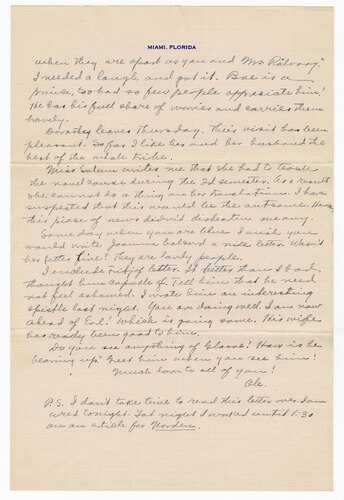 MIAMI, FLORIDA
when they are apart as you and Mrs.
I needed a laugh and got it. Boe is a
prince, too bad so few people appreciate him!
He has his full share of worries and carries them
bravely.
Dorothy leaves Thursday. This visit has been
pleasant. So far I like her and her husband the
best of the whole tribe.
Miss Salem writes me that she had to teach
the novel course during the 2d semester. As a result
she cannot do a thing on her translation. I have
suspected that this would be the outcome. Hence
this piece of news didn't dishearten me any.
Some day when you are blue I wish you
would write Joanna a nice letter. Wasn't
her letter fine? They are lovely people.
I include letter. It better than I had
thought him capable of. Tell him that he need
not feel ashamed. I wrote him an interesting
epistle last night. You are doing well. I am now
ahead of Eve! Which is going some. His wife
has really been good to him.
Do you see anything of ? How is he
bearing up? Greet him when you see him!
Much love to all of you!
Ole.
P.S. I don't take time to read this letter over. I am
tired tonight. Last night I worked until 1:30
on an article for Norden.